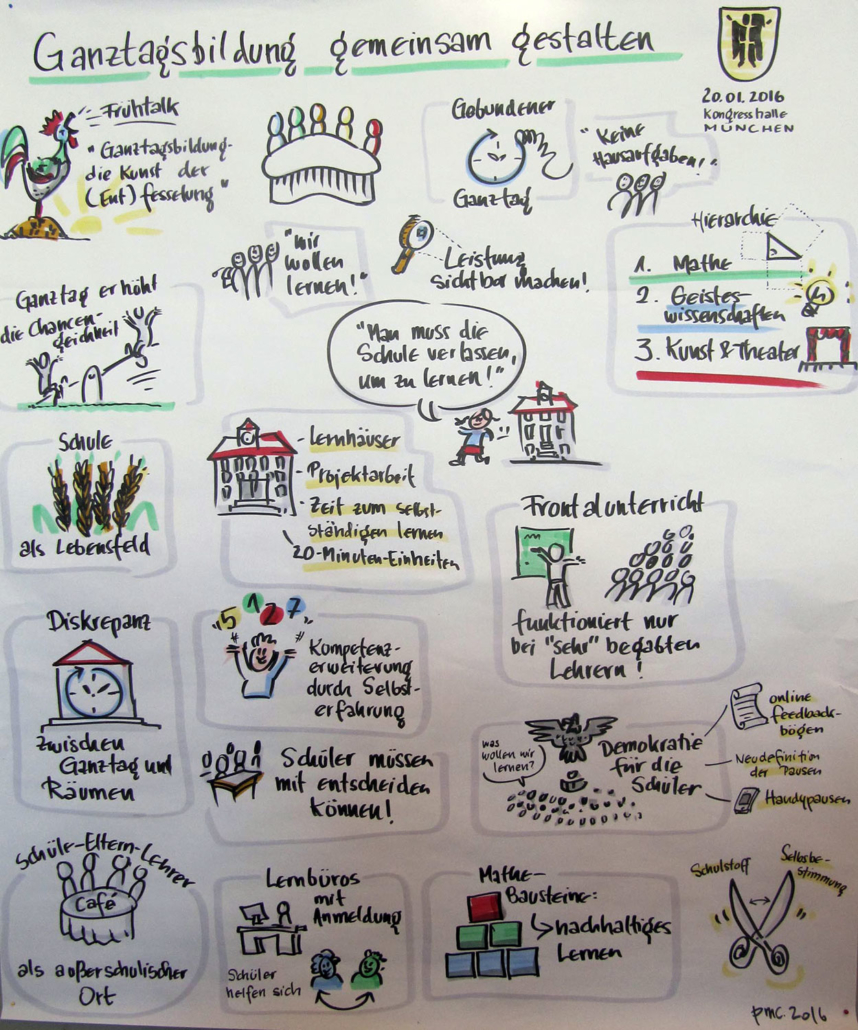 Ganztagsbildung gemeinsam gestalten
20.01.2016
Kongresshalle
MÜNCHEN
Frühtalk
"Ganztagsbildung-
die Kunst der
(Ent)fesselung"
Gebundener
Ganztag
"Keine
Hausaufgaben!"
"Wir
wollen
lernen!"
Leistung
sichtbar machen!
Hierarchie
1. Mathe
2. Geistes-
wissenschaften
3. Kunst & Theater
Ganztag erhöht
die Chancen-
gleichheit
"Man muss die
Schule verlassen,
um zu lernen!"
Schule
als Lebensfeld
- Lernhäuser
- Projektarbeit
- Zeit zum selbst-
ständigen lernen
20-Minuten-Einheiten
Frontalunterricht
funktioniert nur
bei "sehr" begabten
Lehrern!
Diskrepanz
zwischen
Ganztag und
Räumen
5 1 2 7
Kompetenz-
erweiterung
durch Selbst-
erfahrung
Schüler müssen
mit entscheiden
können!
was
wollen wir
lernen?
Demokratie
für die
Schüler
online
feedback-
bögen
Neudefinition
der Pausen
Handypausen
Schüler-Eltern-Lehrer
Café
als außerschulischer
Ort
Lernbüros
mit
Anmeldung
Schüler
helfen sich
Mathe-
Bausteine:
nachhaltiges
Lernen
Schulstoff
Selbstbe-
stimmung
pmc. 2016